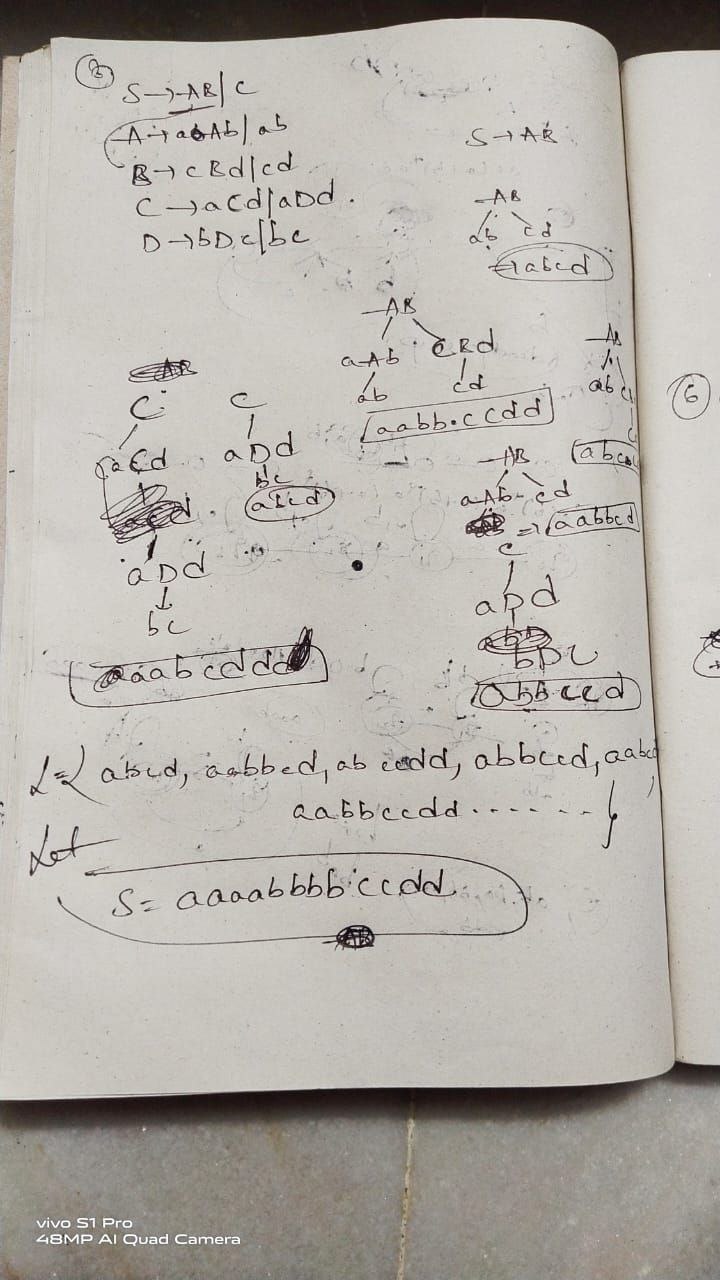 S→AB|C
A→aAb|ab
B→cBd|cd
C→aCd|aDd.
D→bDc|bc
S→AB
AB
ab cd
⇒abcd
AB
aAb cBd
ab cd
aabb.ccdd
AB
ab
C
aCd
aDd
bc
aabcdd
C
aDd
bc
abcd
AB
aAb cd
⇒aabbcd
C
aDd
bDc
abbccd
6
L={abcd, aabbcd, abccdd, abbccd,
aabbccdd ......}
Let
S= aaaabbbbccdd
vivo S1 Pro
48MP AI Quad Camera